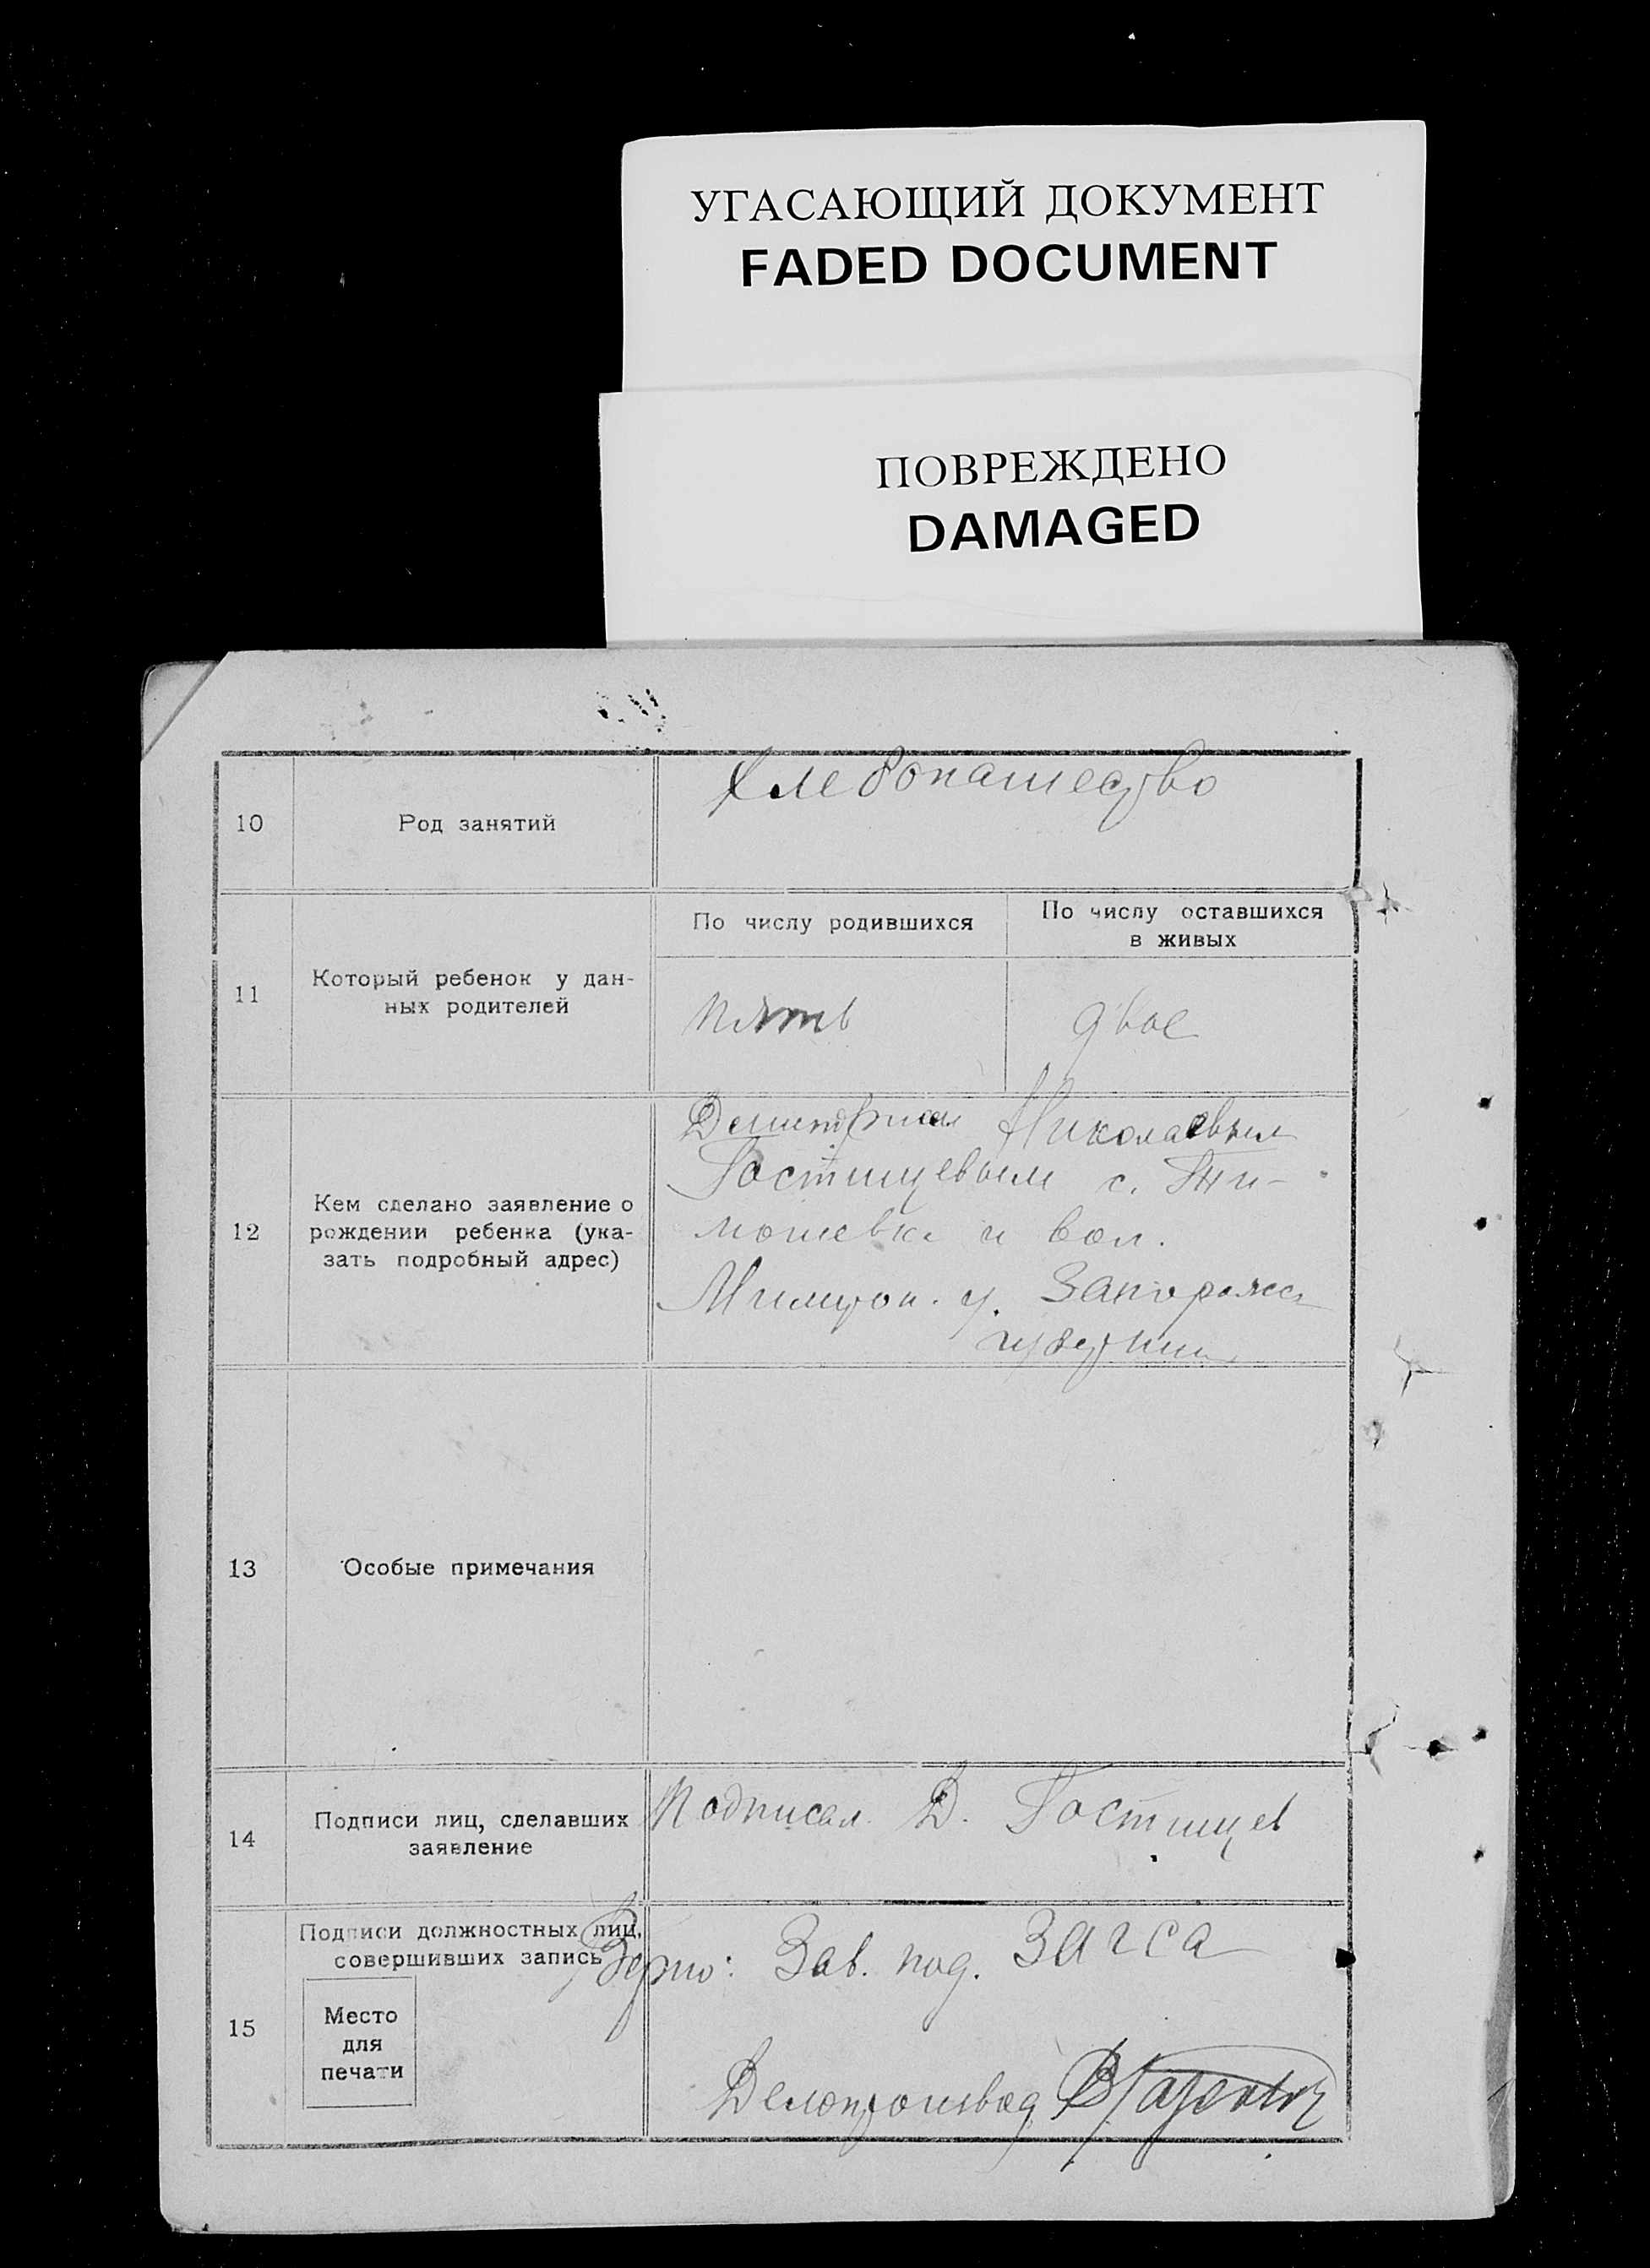 УГАСАЮЩИЙ ДОКУМЕНТ
FADED DOCUMENT
ПОВРЕЖДЕНО
DAMAGED
10
Род занятий
Хлебопашество
11
Который ребенок у дан-
ных родителей
По числу родившихся
пять
По числу оставшихся
в живых
двое
12
Кем сделано заявление о
рождении ребенка (ука-
зать подробный адрес)
Николаевым
Гостищевым с. Ти-
мошевка и вол.
Мелитоп. у. Запорожск
губернии
13
Особые примечания
14
Подписи лиц, сделавших
заявление
Подписал Д. Гостищев
15
Подписи должностных лиц,
совершивших запись
Место
для
печати
Верно: Зав. под. Загса
Делопроизвод